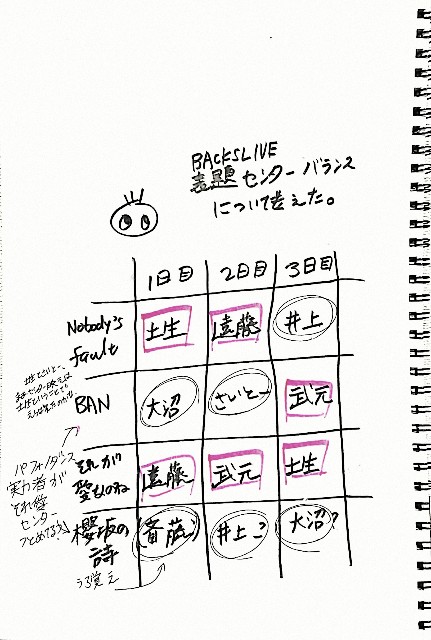 BACKSLIVE
表題センターバランス
について考えた。
1日目 2日目 3日目
Nobody's
fault
土生 遠藤 井上
BAN 大沼 さいとー 武元
それが
愛なのね
遠藤 武元 土生
櫻坂の
詩
(斎藤) 井上? 大沼?
実力者が
それ愛
センター
うろ覚え